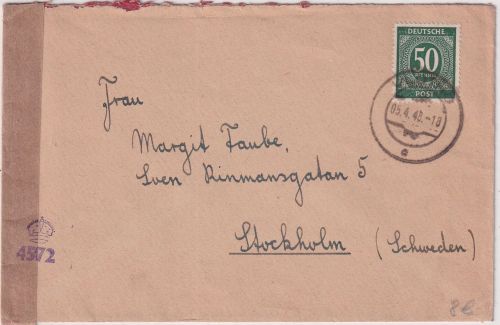 DEUTSCHE
50
PFENNIG
POST
05.4.46.-18
Frau
Margit Taube,
Sven Rinmansgatan 5
Stockholm (Schweden)
4572
8€